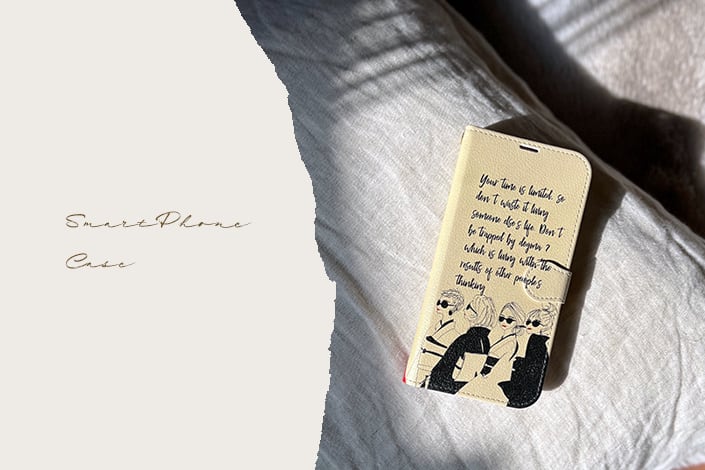 SmartPhone
Case
Your time is limited, so
don't waste it living
someone else's life. Don't
be trapped by dogma ?
which is living with the
results of other people's
thinking